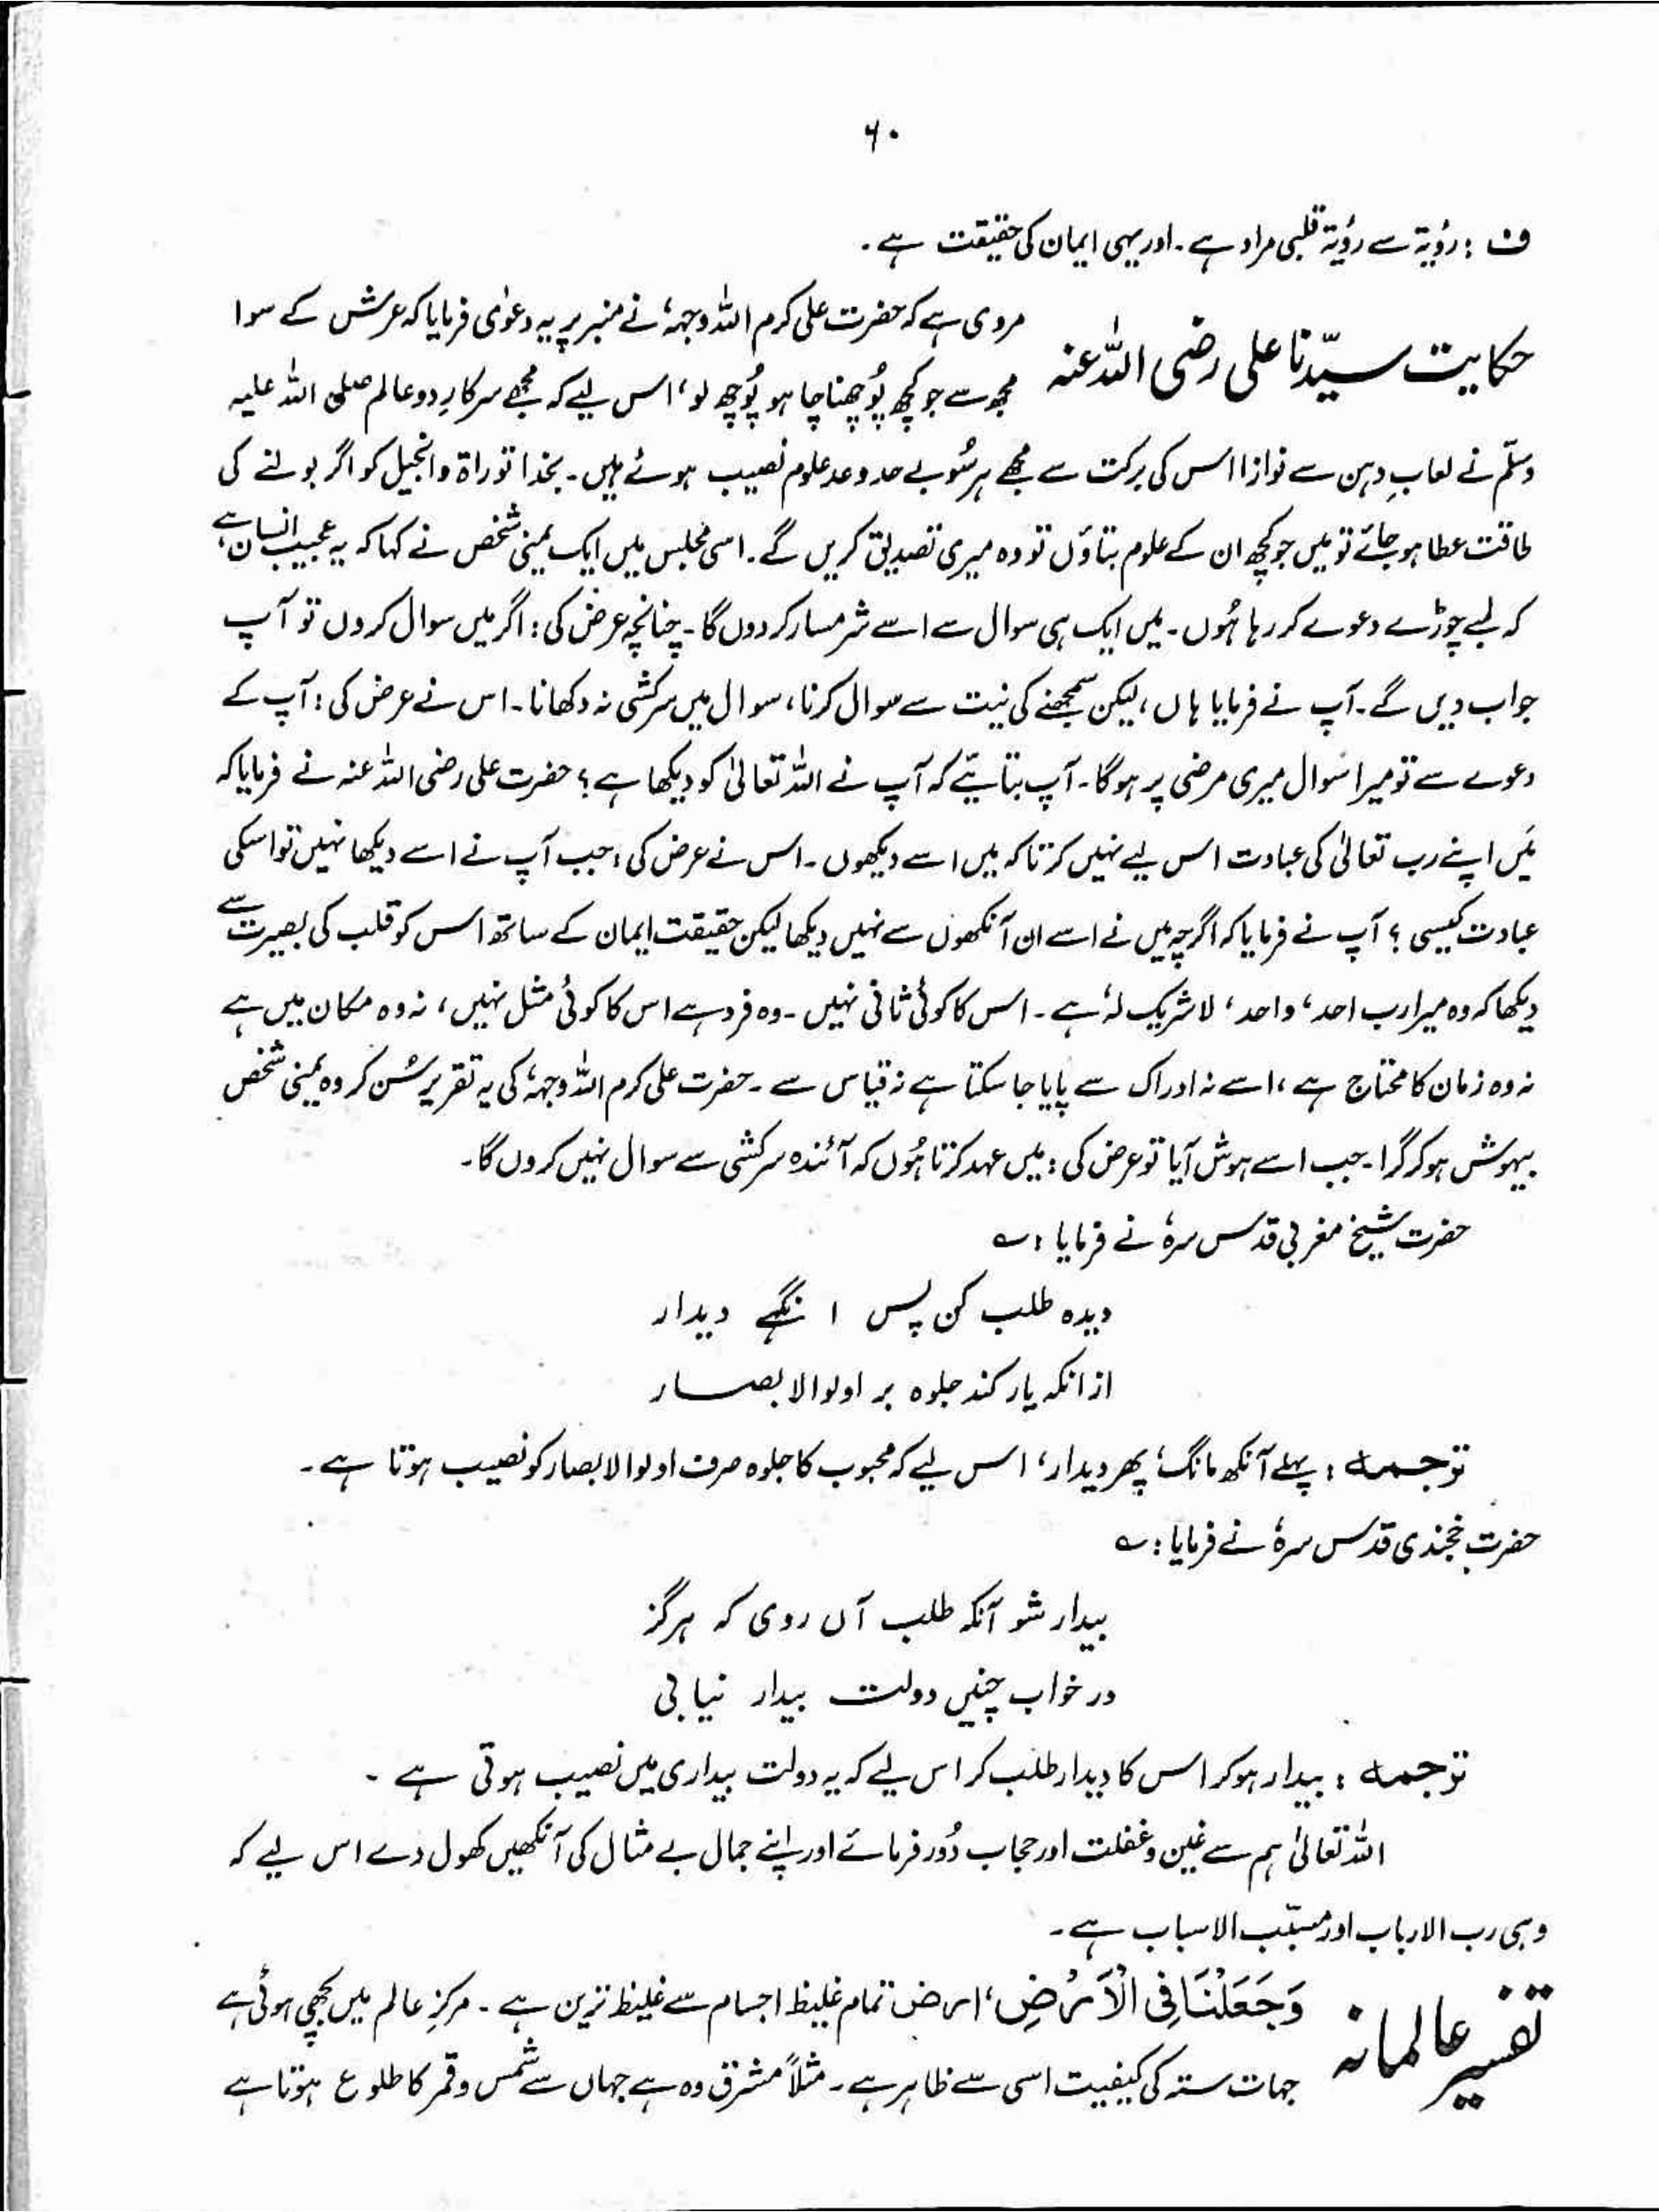 ۶۰
ف : رؤیۃ سے رؤیۃ قلبی مراد ہے ۔ اور یہی ایمان کی حقیقت ہے ۔
حکایت سیّدنا علی رضی اللہ عنہ
مروی ہے کہ حضرت علی کرم اللہ وجہہٗ نے منبر پر یہ دعوٰی فرمایا کہ عرش کے سوا
مجھ سے جو کچھ پُوچھنا چاہو پُوچھ لو ، اس لیے کہ مجھے سرکارِ دو عالم صلی اللہ علیہ
وسلّم نے لعابِ دہن سے نوازا اس کی برکت سے مجھے ہر سُو بے حد و عد علوم نصیب ہوئے ہیں ۔ بخدا توراۃ و انجیل کو اگر بولنے کی
طاقت عطا ہو جائے تو میں جو کچھ ان کے علوم بتاؤں تو وہ میری تصدیق کریں گے ۔ اسی مجلس میں ایک یمنی شخص نے کہا کہ یہ عجیب انسان ہے
کہ لمبے چوڑے دعوے کر رہا ہُوں ۔ میں ایک ہی سوال سے اسے شرمسار کر دوں گا ۔ چنانچہ عرض کی : اگر میں سوال کروں تو آپ
جواب دیں گے ۔ آپ نے فرمایا ہاں ، لیکن سمجھنے کی نیت سے سوال کرنا ، سوال میں سرکشی نہ دکھانا ۔ اس نے عرض کی : آپ کے
دعوے سے تو میرا سوال میری مرضی پر ہوگا ۔ آپ بتائیے کہ آپ نے اللہ تعالیٰ کو دیکھا ہے ؟ حضرت علی رضی اللہ عنہ نے فرمایا کہ
میَں اپنے رب تعالیٰ کی عبادت اس لیے نہیں کرتا کہ میں اسے دیکھوں ۔ اس نے عرض کی ، جب آپ نے اسے دیکھا نہیں تو اسکی
عبادت کیسی ؟ آپ نے فرمایا کہ اگرچہ میں نے اسے ان آنکھوں سے نہیں دیکھا لیکن حقیقت ایمان کے ساتھ اس کو قلب کی بصیرت سے
دیکھا کہ وہ میرا رب احد ، واحد ، لا شریک لہٗ ہے ۔ اس کا کوئی ثانی نہیں ۔ وہ فرد ہے اس کا کوئی مثل نہیں ، نہ وہ مکان میں ہے
نہ وہ زمان کا محتاج ہے ، اسے نہ ادراک سے پایا جا سکتا ہے نہ قیاس سے ۔ حضرت علی کرم اللہ وجہہٗ کی یہ تقریر سُن کر وہ یمنی شخص
بیہوش ہو کر گرا ۔ جب اسے ہوش آیا تو عرض کی : میں عہد کرتا ہُوں کہ آئندہ سرکشی سے سوال نہیں کروں گا ۔
حضرت شیخ مغربی قدس سرہٗ نے فرمایا : ؎
دیدہ طلب کن پس انگہے دیدار
از انکہ یار کند جلوہ بر اولوا الابصار
ترجمہ : پہلے آنکھ مانگ ، پھر دیدار ، اس لیے کہ محبوب کا جلوہ صرف اولوا الابصار کو نصیب ہوتا ہے ۔
حضرتِ خجندی قدس سرہٗ نے فرمایا : ؎
بیدار شو آنکہ طلب آں روی کہ ہرگز
در خواب چنیں دولت بیدار نیابی
ترجمہ : بیدار ہو کر اس کا دیدار طلب کر اس لیے کہ یہ دولت بیداری میں نصیب ہوتی ہے ۔
اللہ تعالیٰ ہم سے غین و غفلت اور حجاب دُور فرمائے اور اپنے جمال بے مثال کی آنکھیں کھول دے اس لیے کہ
وہی رب الارباب اور مسبّب الاسباب ہے ۔
تفسیر عالمانہ
وَجَعَلْنَا فِی الْاَرْضِ ، ارض تمام غلیظ اجسام سے غلیظ ترین ہے ۔ مرکزِ عالم میں بچھی ہوئی ہے
جہات ستہ کی کیفیت اسی سے ظاہر ہے ۔ مثلاً مشرق وہ ہے جہاں سے شمس و قمر کا طلوع ہوتا ہے